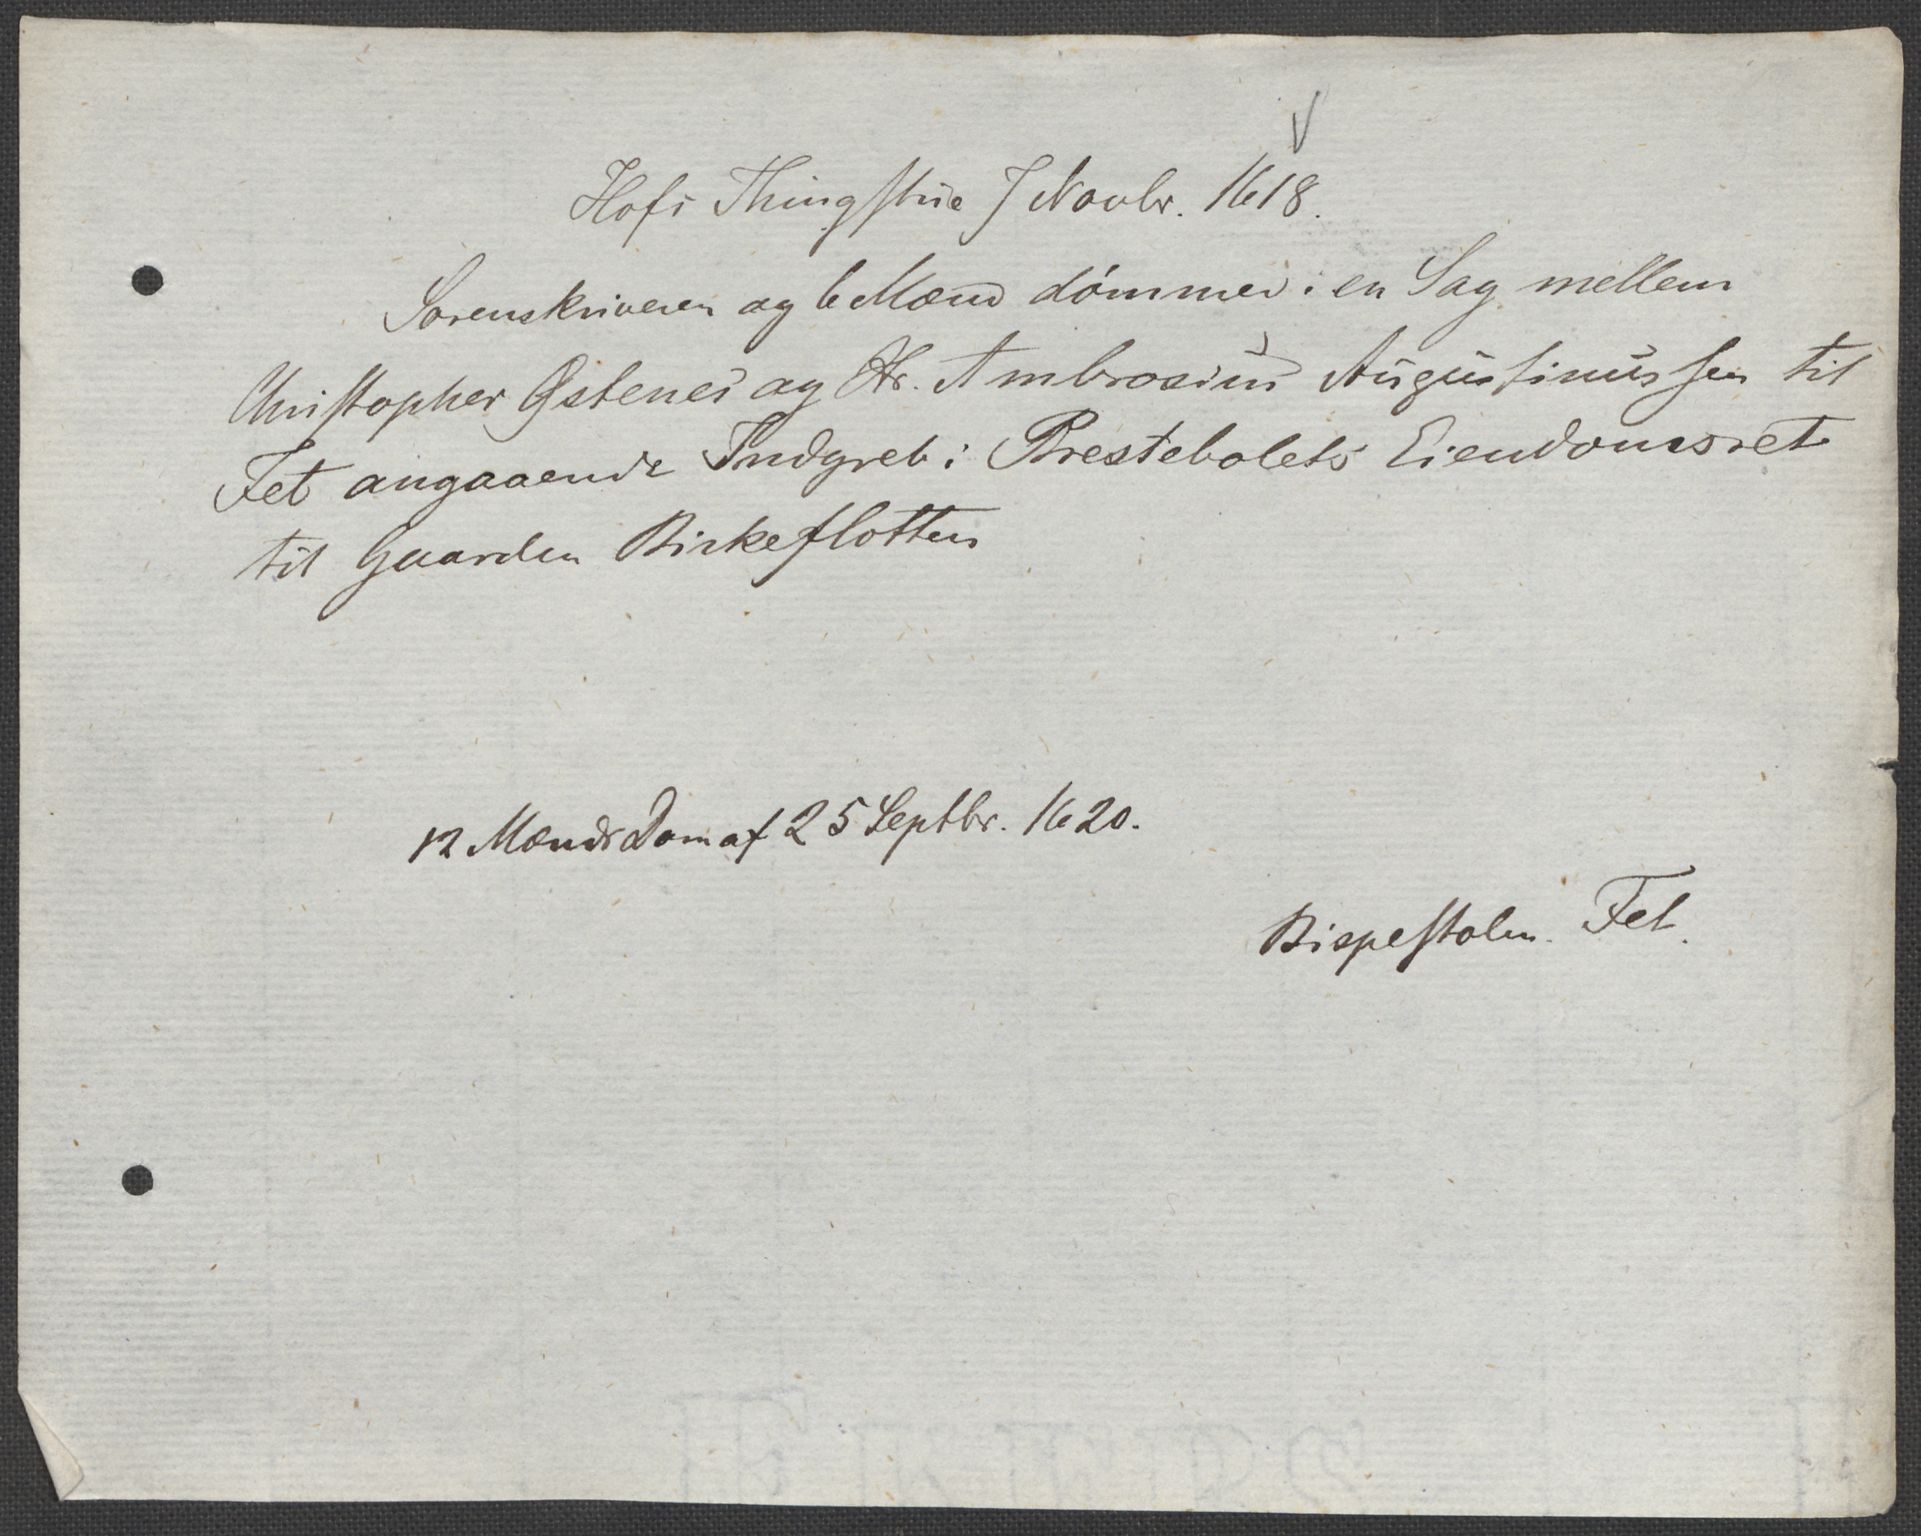 Hofs Thingstue 7 Novbr. 1618.
Sorenskriveren og 6 Mænd dømmer i en Sag mellem
Christopher Østenes og Hr. Ambrosius Augustinussen til
Fet angaaende Indgreb i Prestebolets Eiendomsret
til Gaarden Birkeflotten
12 Mænds Dom af 25 Septbr. 1620.
Bispestolen. Fet.